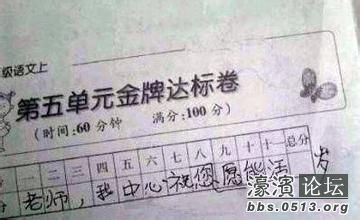 级语文上
第五单元金牌达标卷
(时间:60分钟 满分:100分)
一 二 三 四 五 六 七 八 九 十 十一 总分
分 老师，我中心祝您愿能活 岁
濠滨论坛
bbs.0513.org